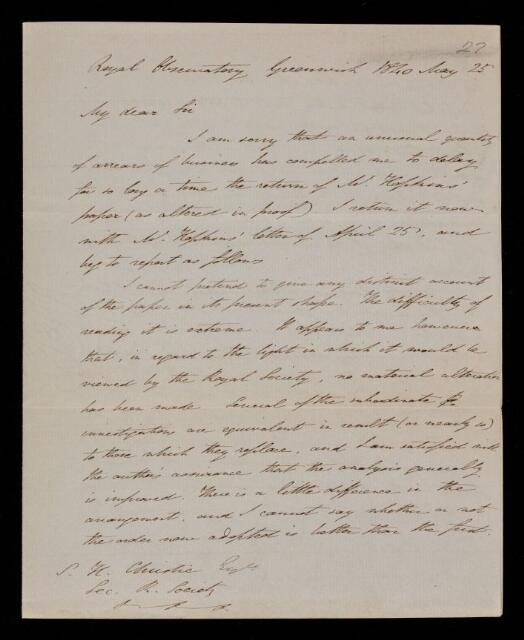 27
Royal Observatory Greenwich 1840 May 25
My dear Sir
I am sorry that an unusual quantity
of arrears of business has compelled me to delay
for so long a time the return of Mr. Hopkins'
paper (as altered in proof) I return it now
with Mr. Hopkins' letter of April 25, and
beg to report as follows
I cannot pretend to give any distinct account
of the paper in its present shape. The difficulty of
reading it is extreme. It appears to me however
that, in regard to the light in which it would be
viewed by the Royal Society, no material alteration
has been made Several of the subordinate
investigations are equivalent in result (or nearly so)
to those which they replace, and I am satisfied with
the author's assurance that the analysis generally
is improved. There is a little difference in the
arrangement, and I cannot say whether or not
the order now adopted is better than the first.
S. H. Christie Esq
Sec. R. Society